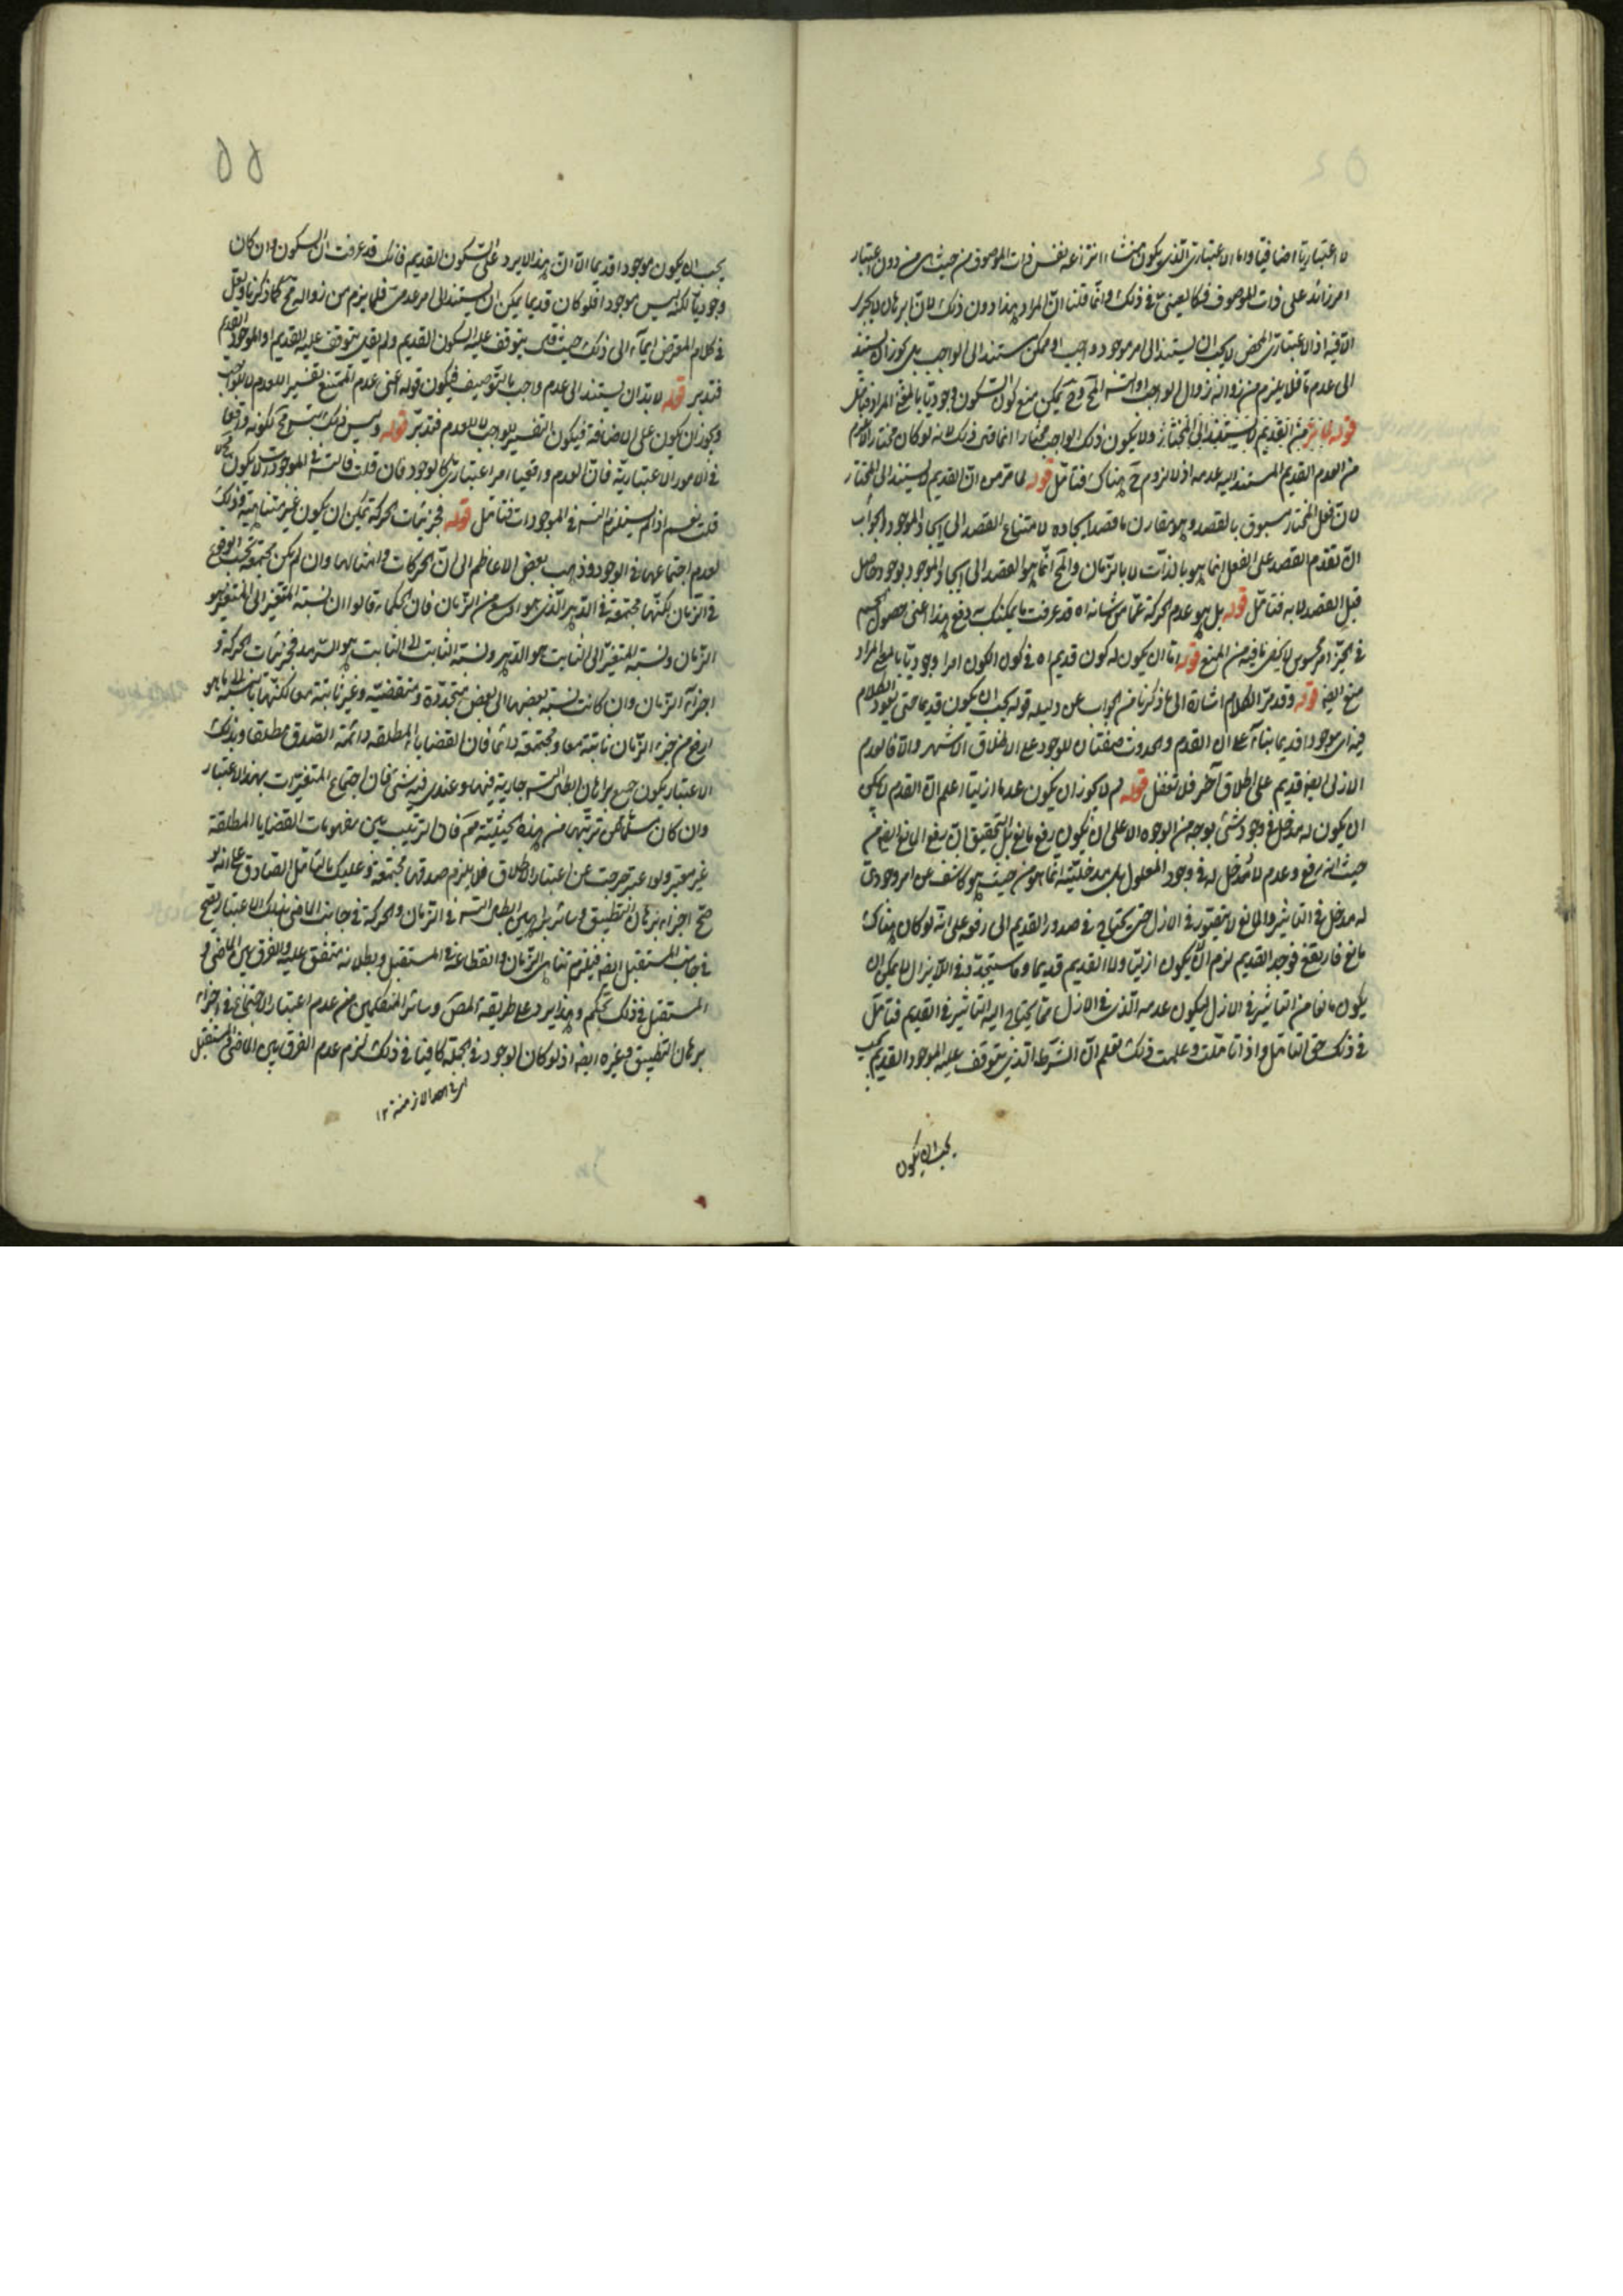 لا اعتباريا اضافيا واما الاعتباري الذي يكون منشاء انتزاعه نفس ذات الموصوف من حيث هي من دون اعتبار
امر زائد على ذات الموصوف فكالعيني في ذلك وانما قلنا ان المراد هذا دون ذلك لان البرهان لا يجري
الا فيه اذ الاعتباري المحض لا يجب ان يستند الى امر موجود واجب او ممكن مستند الى الواجب بل يجوز ان يستند
الى عدم ما فلا يلزم من زواله زوال الواجب او التسـ المح وح يمكن منع كون السكون وجوديا بالمعنى المراد فتامل
قوله القديم لا يستند الى المختار ولا يكون ذلك الواجب مختارا انما قلنا ذلك لانه لو كان مختارا لزم
من العدم القديم المستند اليه عدمه اذ لا لزوم ح هناك فتامل قوله لما مر من ان القديم لا يستند الى المختار
لان فعل المختار مسبوق بالقصد وهو مقارن ما قصد ايجاده لامتناع القصد الى ايجاد الموجود والجواب
ان تقدم القصد على الفعل انما هو بالذات لا بالزمان والمح انما هو القصد الى ايجاد الموجود بوجود حاصل
قبل القصد لا به فتامل قوله بل هو عدم الحركة عما من شانه اه قد عرفت ما يمكنك به دفع هذا اعنى حصول الجسم
في الحيز امر محسوس لا يخفى ما فيه من المنع قوله اما ان يكون له كون قديم اه في كون الكون امرا وجوديا بالمعنى المراد
منع ايضا قوله وقد مر الكلام اشارة الى ما ذكرنا من الجواب عن دليله قوله يجب ان يكون قديما حتى يعود الكلام
فيه اي موجودا قديما بناء على ان القدم والحدوث صفتان للوجود على الاطلاق الاشهر والا فالعدم
الازلي ايضا قديم على اطلاق آخر فلا تغفل قوله لم لا يجوز ان يكون عدما ازليا اعلم ان القدم لا يمكن
ان يكون له مدخل في وجود شئ بوجه من الوجوه الا على ان يكون رفع مانع بل التحقيق ان رفع المانع ايضا من
حيث انه رفع وعدم لا مدخل له في وجود المعلول بل مدخليته انما هو من حيث هو كاشف عن امر وجودي
له مدخل في التاثير والمانع لا يتصور في الازل حتى يحتاج في صدور القديم الى رفعه على انه لو كان هناك
مانع فارتفع فوجد القديم لزم ان يكون ازليا ولا القديم قديما وما سيتجدد في اللايزال لا يمكن ان
يكون مانعا من التاثير في الازل ليكون عدمه الذي في الازل مما يحتاج اليه التاثير في القديم فتامل
في ذلك حق التامل واذا تاملت وعلمت ذلك تعلم ان الشرط الذي يتوقف عليه الموجود القديم يجب
يجب ان يكون
٥٥
يجب ان يكون موجودا قديما الا ان هذا لا يرد على السكون القديم فانك قد عرفت ان السكون وان كان
وجوديا لكنه ليس موجودا فلو كان قديما يمكن ان يستند الى امر عدمي فلا يلزم من زواله مح كما ذكرنا ولعل
في كلام المعترض ايماء الى ذلك حيث قال يتوقف عليه السكون القديم ولم يقل يتوقف عليه القديم او الموجود القديم
فتدبر قوله لا بد ان يستند الى عدم واجب بالتوصيف فيكون قوله اعنى عدم الممتنع تفسيرا للعدم لا للواجب
ويجوز ان يكون على الاضافة فيكون التفسير للواجب لا للعدم فتدبر قوله وليس ذلك التسـ مح لكونه واقعا
في الامور الاعتبارية فان العدم واقعيا امر اعتباري كالوجود فان قلت فالتسـ في الموجودات لا يكون مح
قلت نعم اذا لم يستلزم التسـ في الموجودات فتامل قوله فجزئيات الحركة يمكن ان يكون غير متناهية وذلك
لعدم اجتماعها في الوجود وذهب بعض الاعاظم الى ان الحركات وامثالها وان لم يكن مجتمعة بحسب الوقوع
في الزمان لكنها مجتمعة في الدهر الذي هو اوسع من الزمان فان الحكماء قالوا ان نسبة المتغير الى المتغير هو
الزمان ونسبة المتغير الى الثابت هو الدهر ونسبة الثابت الى الثابت هو السرمد فجزئيات الحركة و
اجزاء الزمان وان كانت نسبة بعضها الى بعض متجددة ومنقضية وغير ثابتة معا لكنها بالنسبة الى ما هو
ارفع من جزء الزمان ثابتة معا ومجتمعة دائما فان القضايا المطلقة دائمة الصدق مطلقا وبذلك
الاعتبار يكون جميع براهين ابطال التسـ جارية فيها وعندي فيه شئ فان اجتماع المتغيرات بهذا الاعتبار
وان كان مسلما لكن ترتبها من هذه الحيثية مم فان الترتيب بين مفهومات القضايا المطلقة
غير معتبر ولو اعتبر خرجت عن اعتبار الاطلاق فلا يلزم صدقها مجتمعة وعليك بالتامل الصادق على انه لو
صح اجراء برهان التطبيق وسائر براهين ابطال التسـ في الزمان والحركة في جانب الماضي بذلك الاعتبار يصح
في جانب المستقبل ايضا فيلزم تناهي الزمان وانقطاعه في المستقبل وبطلانه متفق عليه والفرق بين الماضي و
المستقبل في ذلك تحكم وهذا يرد على طريقة المص وسائر المتكلمين من عدم اعتبار الاجتماع في اجراء
برهان التطبيق وغيره ايضا اذ لو كان الوجود في الجملة كافيا في ذلك لزم عدم الفرق بين الماضي والمستقبل